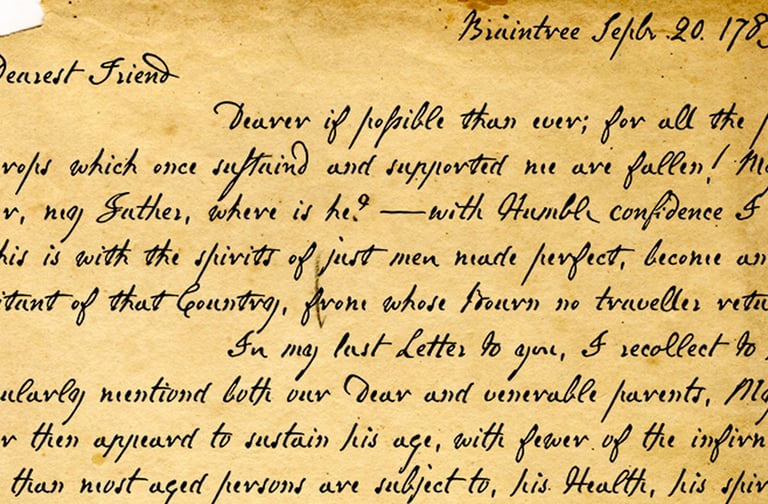 Braintree Sepbr. 20. 178
Dearest Friend
Dearer if poſsible than ever; for all the p
rops which once suſtaind and supported me are fallen! My
r, my Father, where is he? —with Humble confidence I
his is with the spirits of just men made perfect, become an
itant of that Country, from whose Bourn no traveller retu
In my last Letter to you, I recollect to
ularly mentiond both our Dear and venerable parents, My
r then appeard to sustain his age, with fewer of the infirm
than most aged persons are subject to, his Health, his spir